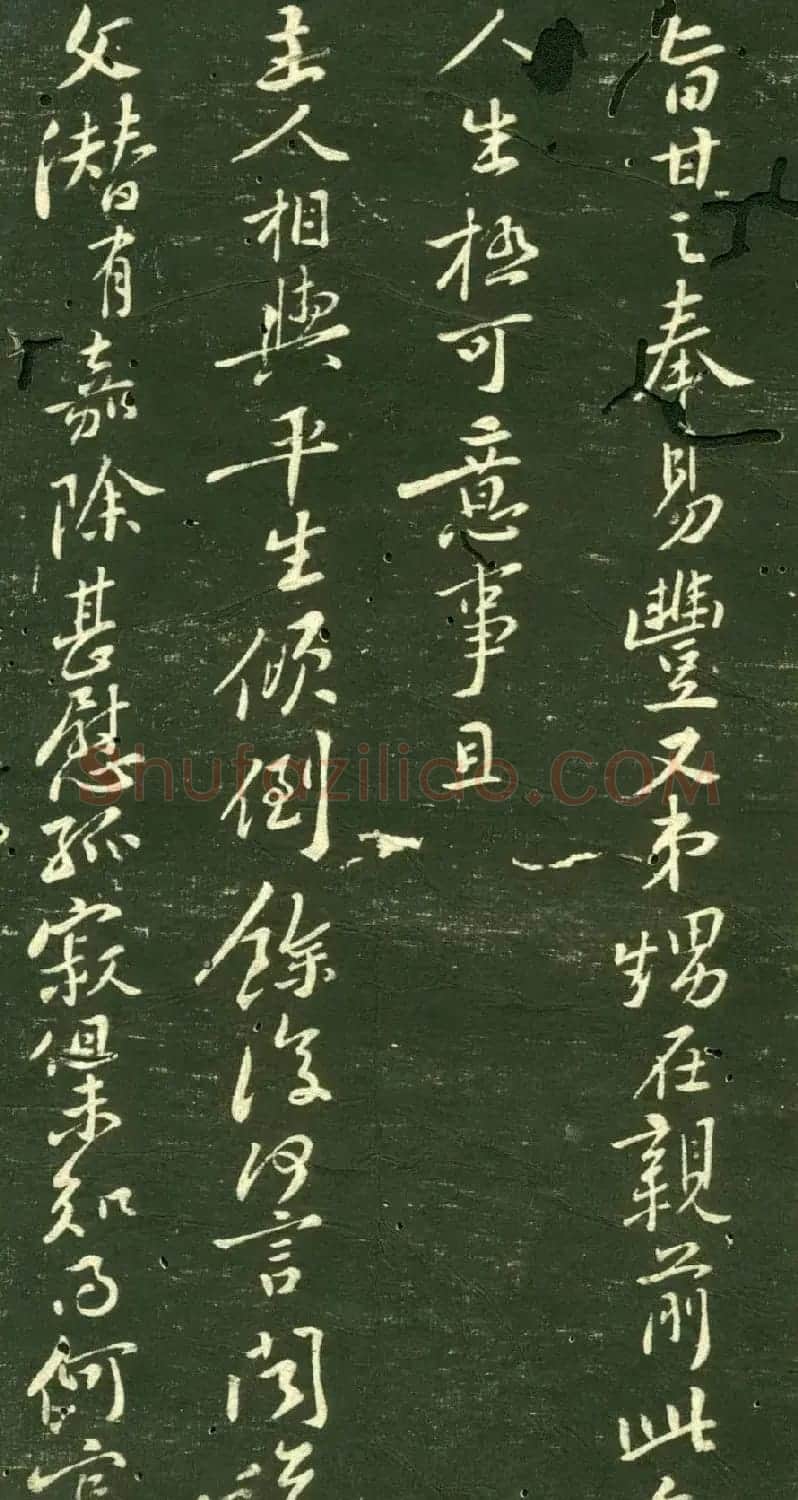 旨甘之奉易豐又弟甥在親前此
人生極可意事且
主人相與平生傾倒餘復何言聞
父潛有嘉除甚慰孤寂但未知為何官
Shufaziliao.COM